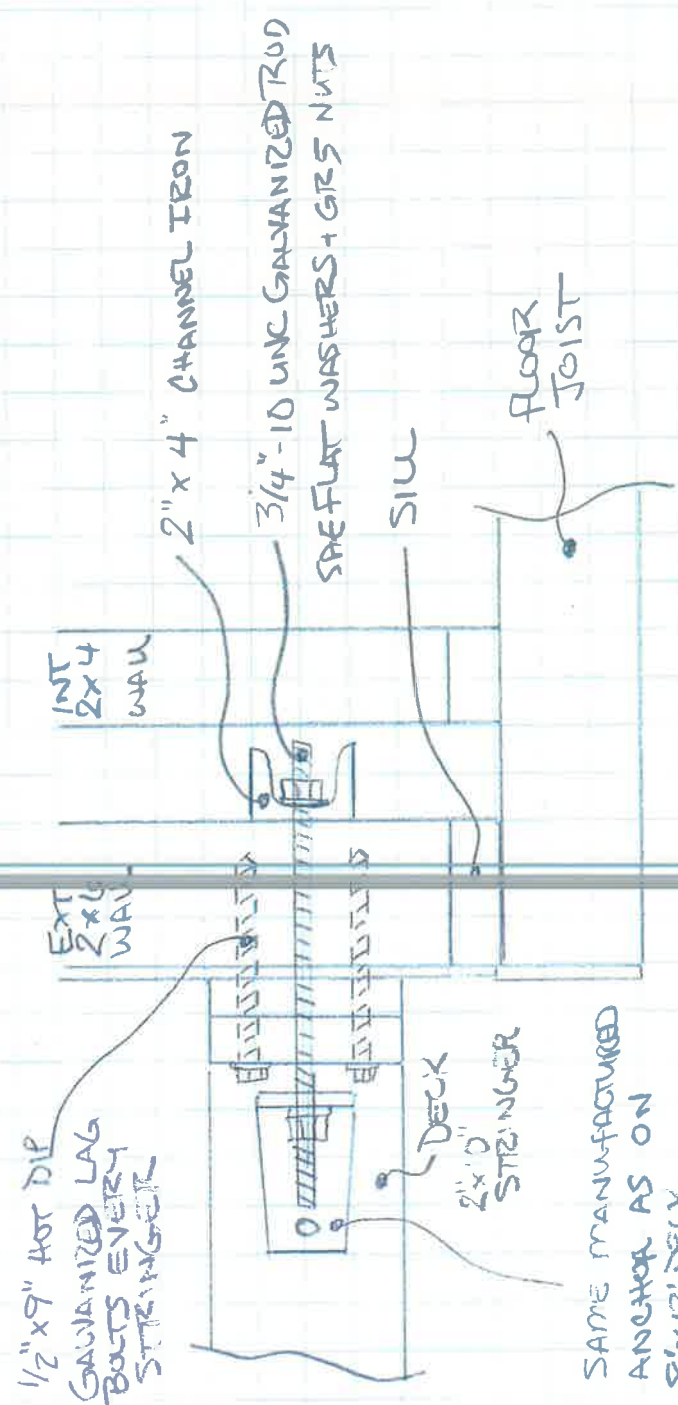 1/2" x 9" HOT DIP
GALVANIZED LAG
BOLTS EVERY
STRINGER
EXT
2x6
WALL
INT
2x4
WALL
2" x 4" CHANNEL IRON
3/4"-10 UNC GALVANIZED ROD
SAE FLAT WASHERS + GR5 NUTS
SILL
FLOOR
JOIST
DECK
2"x10"
STRINGER
SAME MANUFACTURED
ANCHOR AS ON